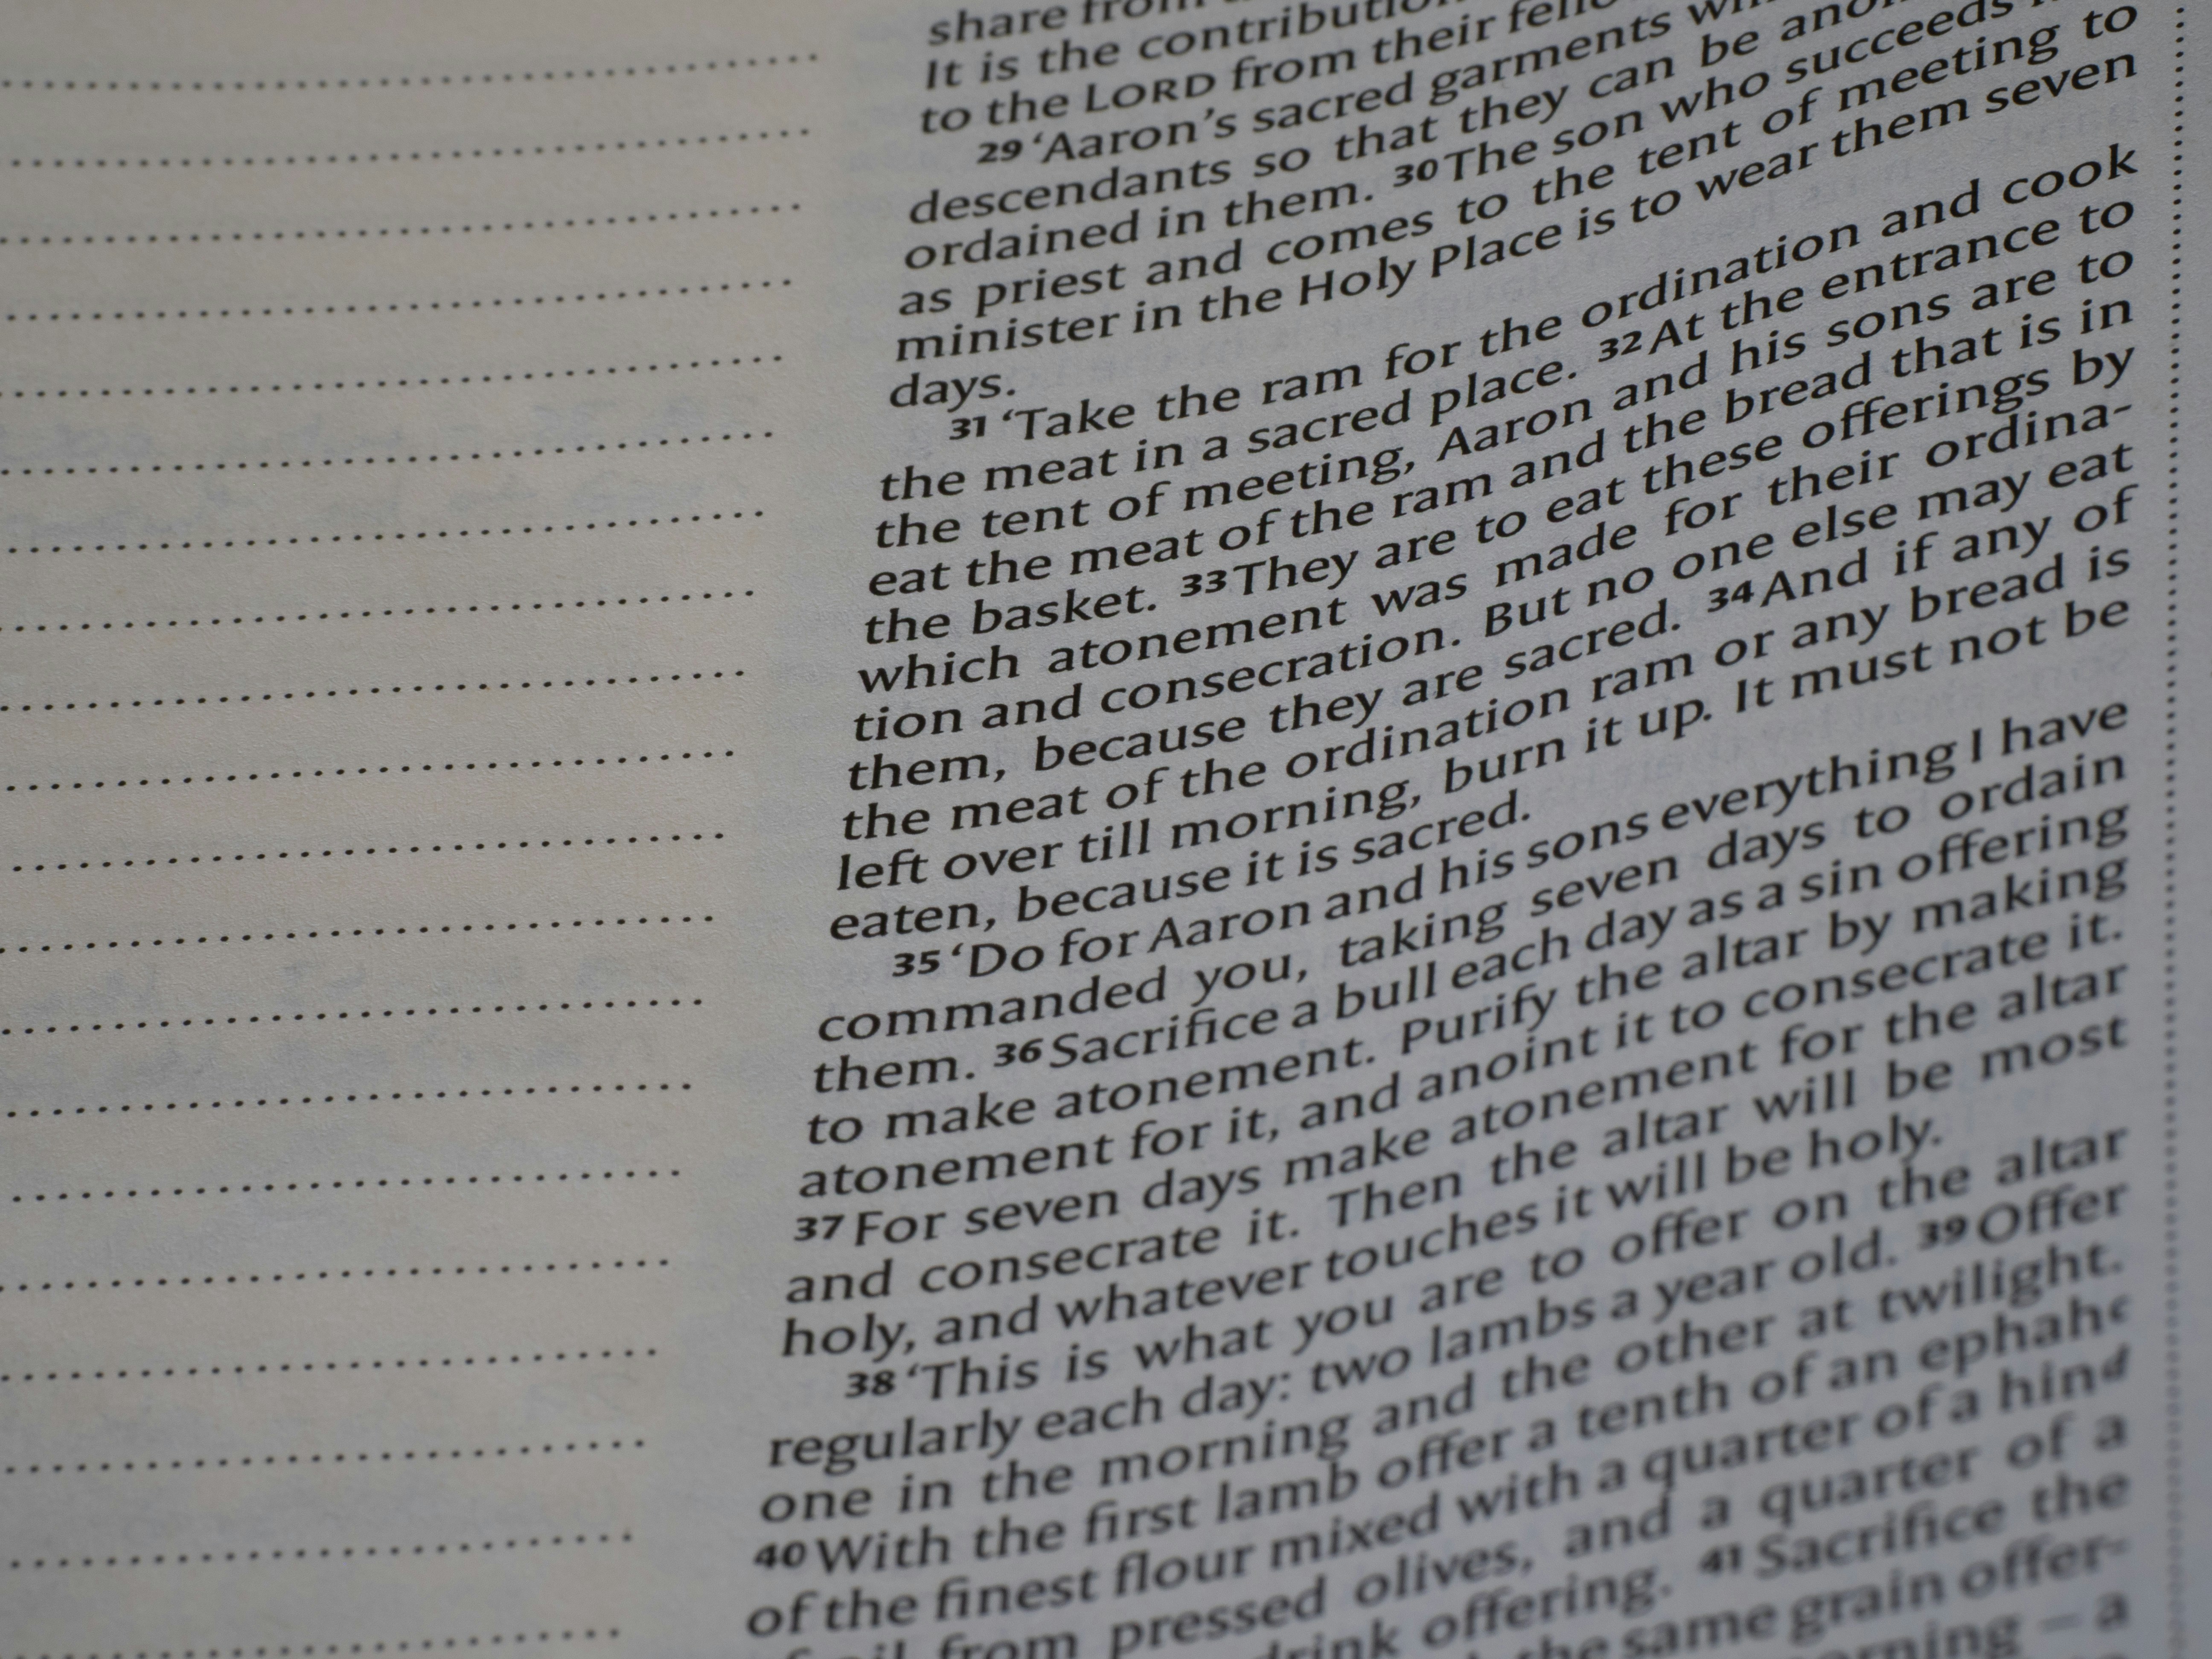 share from
It is the contribution
to the LORD from their
29 ‘Aaron’s sacred garments
descendants so that they can be
ordained in them. 30 The son who succeeds
as priest and comes to the tent of meeting to
minister in the Holy Place is to wear them seven
days.
31 ‘Take the ram for the ordination and cook
the meat in a sacred place. 32 At the entrance to
the tent of meeting, Aaron and his sons are to
eat the meat of the ram and the bread that is in
the basket. 33 They are to eat these offerings by
which atonement was made for their ordina-
tion and consecration. But no one else may eat
them, because they are sacred. 34 And if any of
the meat of the ordination ram or any bread is
left over till morning, burn it up. It must not be
eaten, because it is sacred.
35 ‘Do for Aaron and his sons everything I have
commanded you, taking seven days to ordain
them. 36 Sacrifice a bull each day as a sin offering
to make atonement. Purify the altar by making
atonement for it, and anoint it to consecrate it.
37 For seven days make atonement for the altar
and consecrate it. Then the altar will be most
holy, and whatever touches it will be holy.
38 ‘This is what you are to offer on the altar
regularly each day: two lambs a year old. 39 Offer
one in the morning and the other at twilight.
40 With the first lamb offer a tenth of an ephah c
of the finest flour mixed with a quarter of a hin d
of oil from pressed olives, and a quarter of a
drink offering. 41 Sacrifice the
the same grain offer-
– a